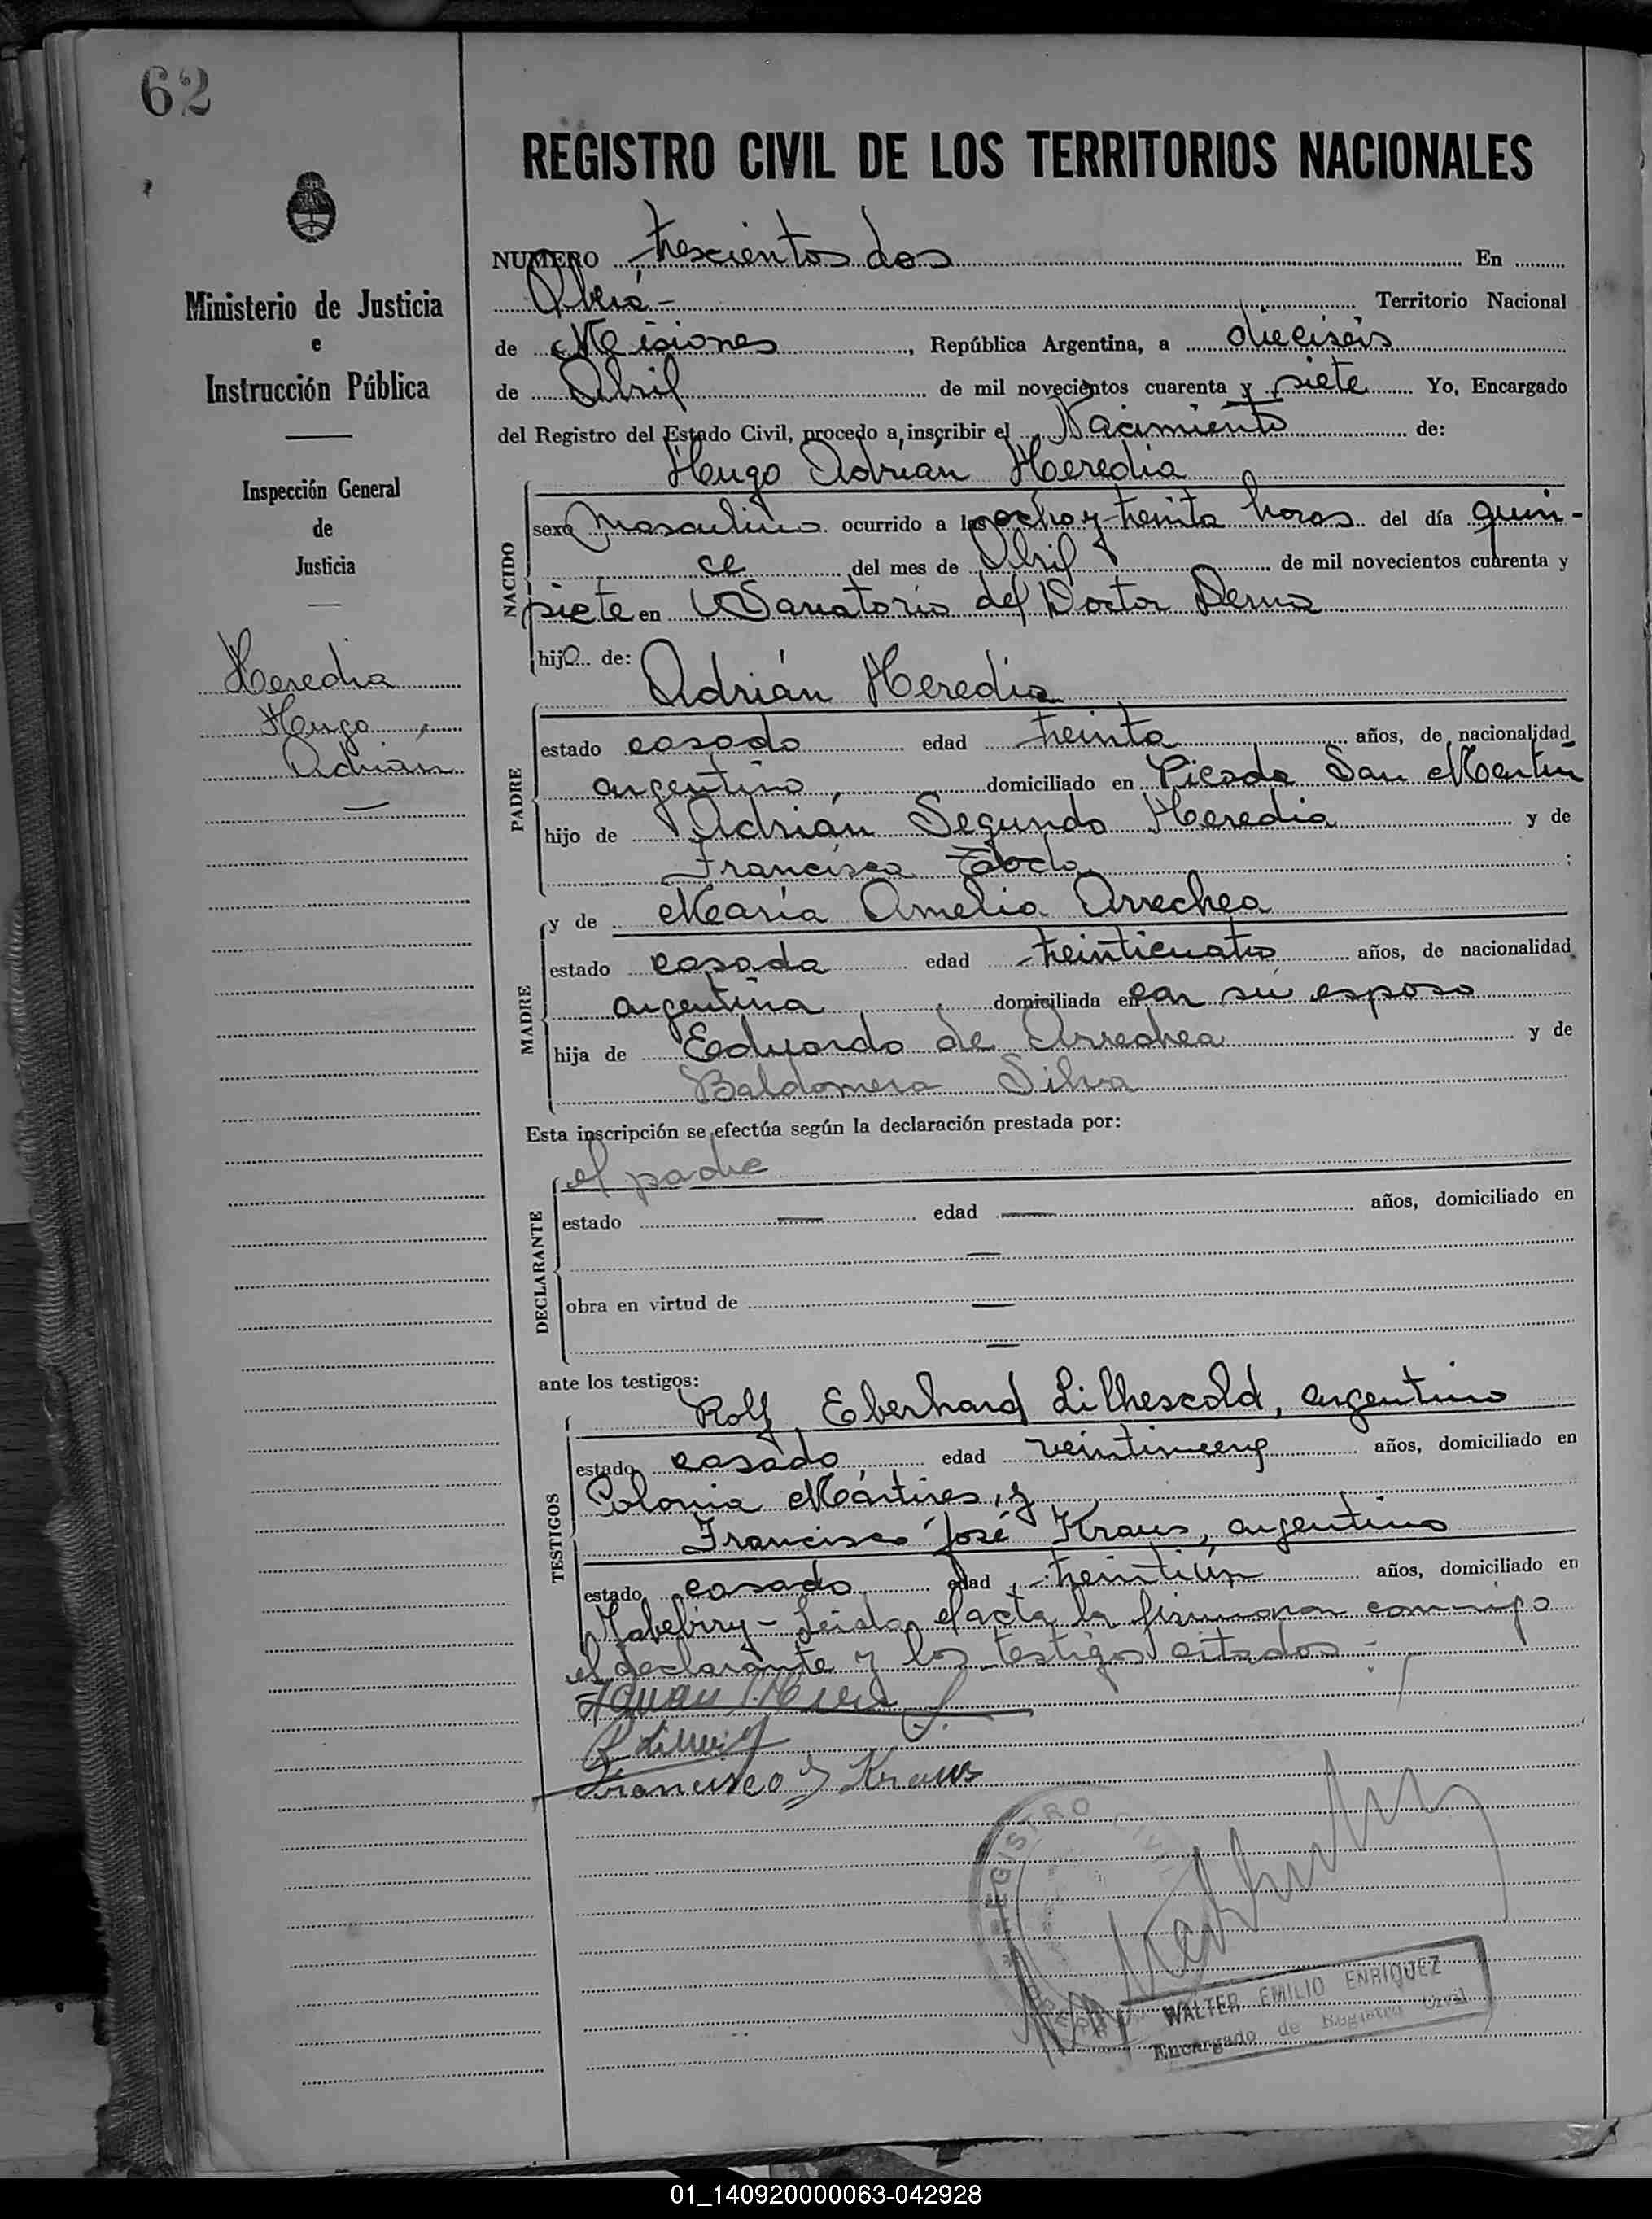 62
REGISTRO CIVIL DE LOS TERRITORIOS NACIONALES
Ministerio de Justicia
e
Instrucción Pública
Inspección General
de
Justicia
Heredia
Hugo
Adrián
NUMERO trescientos dos En
Oberá - Territorio Nacional
de Misiones, República Argentina, a dieciséis
de Abril de mil novecientos cuarenta y siete Yo, Encargado
del Registro del Estado Civil, procedo a inscribir el Nacimiento de:
Hugo Adrián Heredia
NACIDO
sexo masculino ocurrido a las ocho y treinta horas del día quin-
ce del mes de Abril de mil novecientos cuarenta y
siete en Sanatorio del Doctor
hijo de:
Adrián Heredia
PADRE
estado casado edad treinta años, de nacionalidad
argentino, domiciliado en Picada San Martín
hijo de Adrián Segundo Heredia y de
Francisca ;
y de María Amelia Arrechea
MADRE
estado casada edad treinticuatro años, de nacionalidad
argentina domiciliada en con su esposo
hija de Eduardo de Arrechea y de
Baldomera Silva
Esta inscripción se efectúa según la declaración prestada por:
el padre
DECLARANTE
estado — edad — años, domiciliado en
—
obra en virtud de —
—
ante los testigos:
TESTIGOS
Rolf Eberhard, argentino
estado casado edad años, domiciliado en
Colonia Mártires, y
Francisco José Kraus, argentino
estado casado, edad treintiún años, domiciliado en
Yabebiry - Leida el acta la firmaron conmigo
el declarante y los testigos citados -
Francisco J Kraus
REGISTRO CIVIL
WALTER EMILIO ENRIQUEZ
Encargado de Registro Civil
01_140920000063-042928